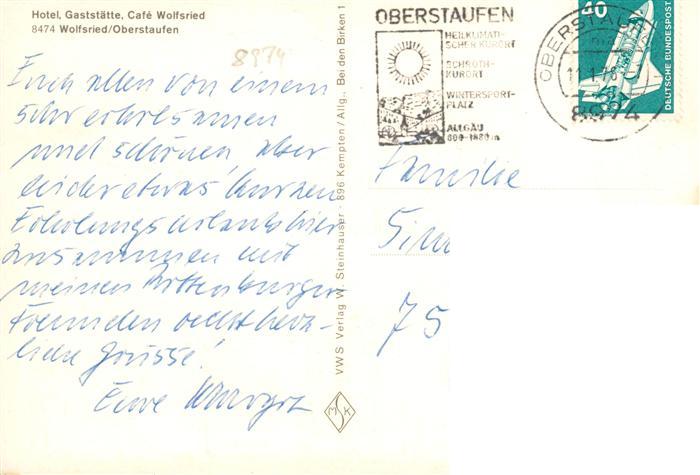 Hotel, Gaststätte, Café Wolfsried
8474 Wolfsried/Oberstaufen
8974
Euch allen von einem
sehr erholsamen
und schönen, aber
leider etwas kurzen
Erholungsurlaub hier
zusammen mit
meinen
Freunden recht herz-
liche Grüsse!
Eure
VWS Verlag W. Steinhauser · 896 Kempten/Allg., Bei den Birken 1
MSK
OBERSTAUFEN
HEILKLIMATI-
SCHER KURORT
SCHROTH-
KURORT
WINTERSPORT-
PLATZ
ALLGÄU
800-1880 m
OBERSTAUFEN
8974
40
DEUTSCHE BUNDESPOST
Familie
Sim
75